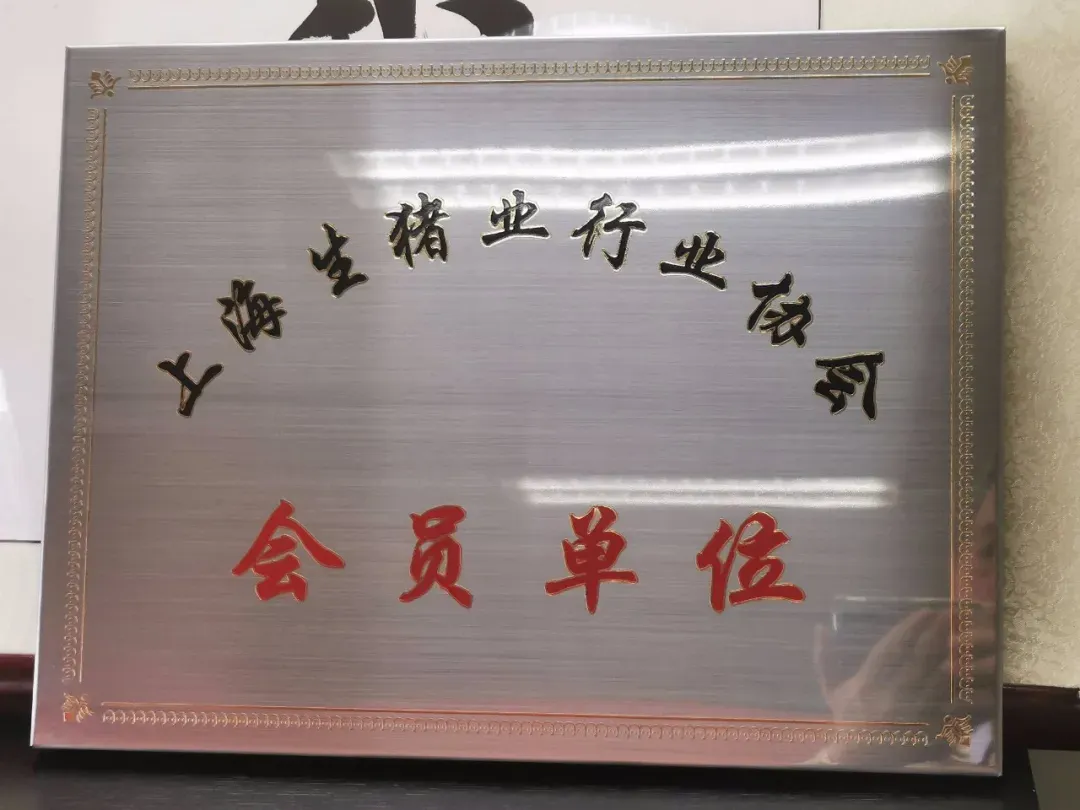 上海生猪业行业协会
会员单位